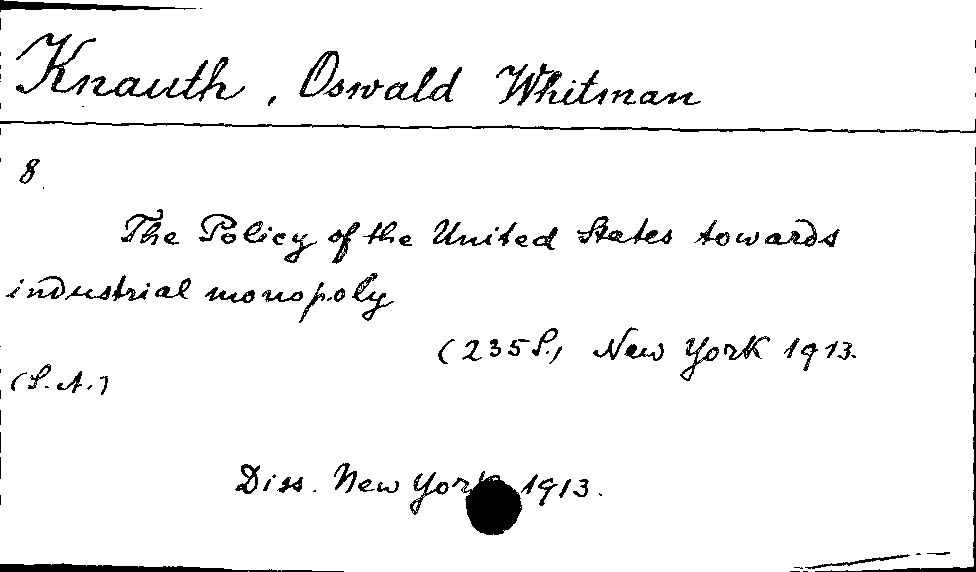 Knauth, Oswald Whitman
8
The Policy of the United States towards
industrial monopoly
(235 S.) New York 1913.
(S.A.)
Diss. New York 1913.